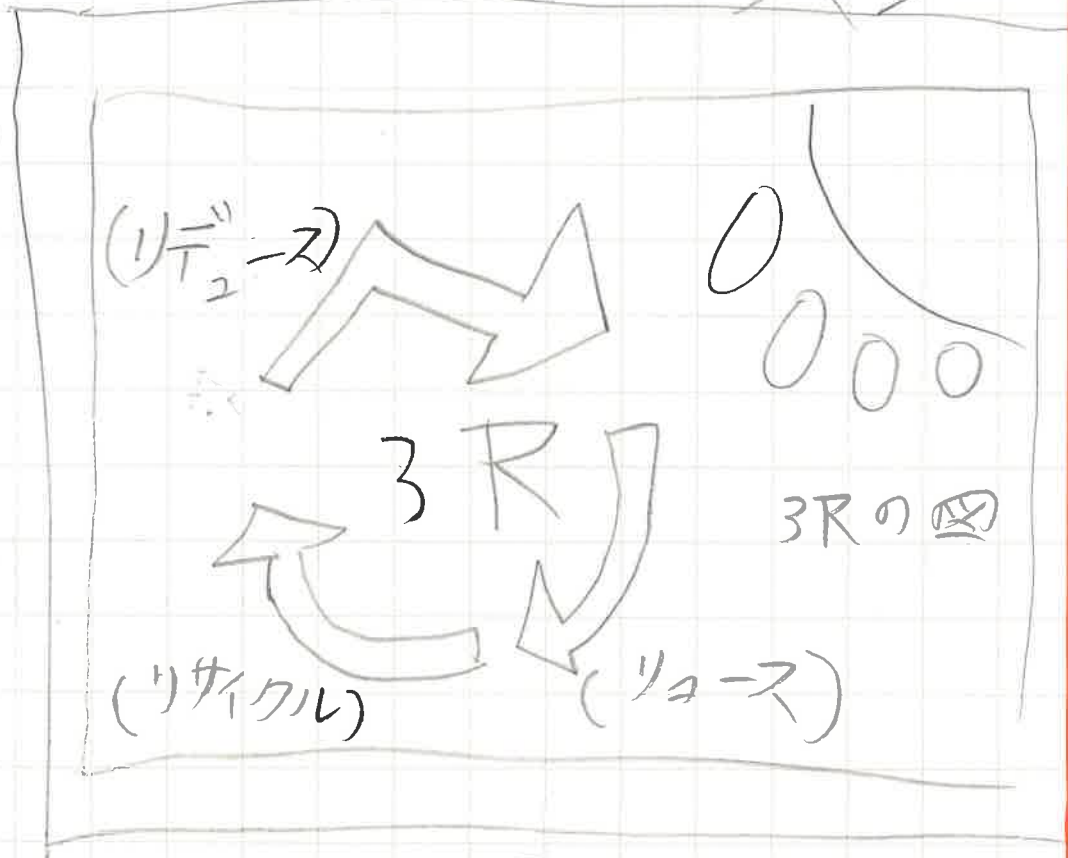 (リデュース)
3R
3Rの図
(リサイクル)
(リユース)